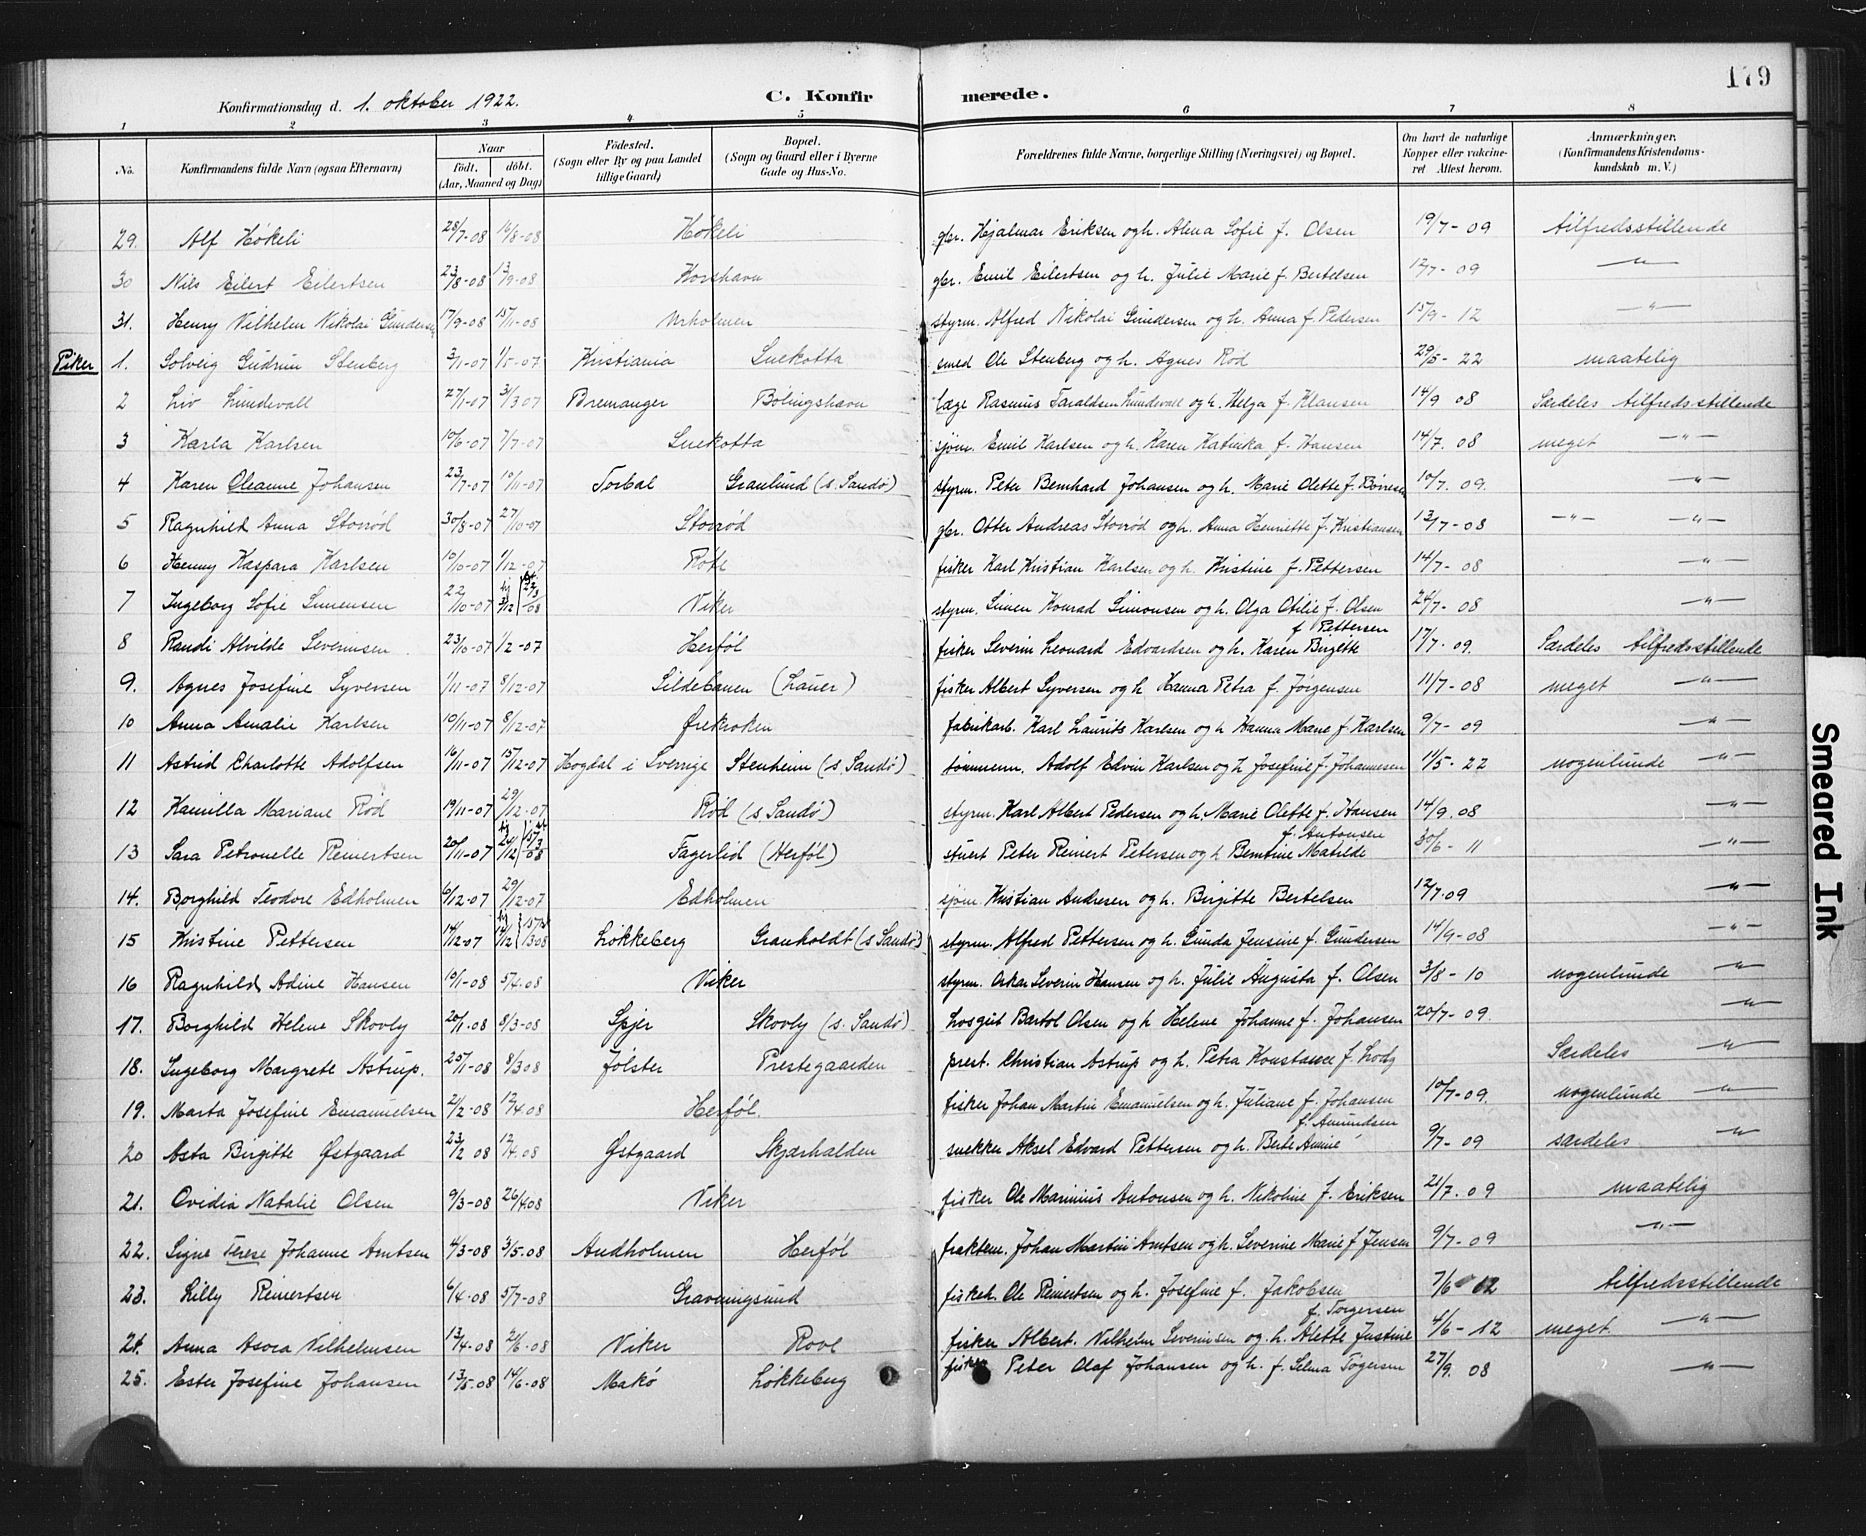 179
Konfirmationsdag d. 1. oktober 1922. C. Konfirmerede.
1 2 3 4 5 6 7 8
No. Konfirmandens fulde Navn (ogsaa Efternavn) Naar födt. döbt. (Aar, Maaned og Dag) Födested. (Sogn eller By og paa Landet tillige Gaard) Bopæl. (Sogn og Gaard eller i Byerne Gade og Hus-No. Forældrenes fulde Navne, borgerlige Stilling (Næringsvei) og Bopæl. Om havt de naturlige Kopper eller vakcineret Attest herom. Anmærkninger. (Konfirmandens Kristendomskundskab m. V.)
29. Alf Høkeli 28/7-08 16/8-08 Høkeli gbr. Hjalmar Eriksen og h. Alma Sofie f. Olsen 19/7-09 tilfredsstillende
30 Nils Eilert Eilertsen 23/8-08 13/9-08 Korshavn gbr. Emil Eilertsen og h. Julie Marie f. Bertelsen 12/7-09 -"-
31. Henry Vilhelm Nikolai Gundersen 17/9-08 15/11-08 Urholmen styrm. Alfred Nikolai Gundersen og h. Anna f. Pedersen 15/9-12 -"-
Piker 1. Solveig Gudrun Stenberg 3/1-07 1/5-07 Kristiania Snekotta smed Ole Stenberg og h. Agnes Rød 29/5-22 maatelig
2 Liv Lundevall 27/1-07 31/3 07 Bremanger Bølingshavn læge Rasmus Taraldsen Lundevall og h. Helga f. Klausen 14/9 08 Særdeles tilfredsstillende
3 Karla Karlsen 10/6-07 7/7-07 Snekotta sjøm. Emil Karlsen og h. Karen Katinka f. Hansen 14/7. 08 meget -"-
4 Karen Oleanne Johansen 23/7-07 10/11-07 Torbal Granlund (s. Sandø) styrm. Peter Bernhard Johansen og h. Marie Olette f. Børresen 10/7. 09. -"-
5 Ragnhild Anna Storrød 30/8-07 27/10-07 Storrød gbr. Otter Andreas Storrød og h. Anna Henriette f. Kristiansen 13/7-08 -"- -"-
6 Henny Kaspara Karlsen 10/10-07 1/12-07 Røve fisker Karl Kristian Karlsen og h. Kristine f. Pettersen 14/7-08 -"-
7 Ingeborg Sofie Simensen 22/10-07 Viker styrm. Simen Konrad Simonsen og h. Olga Otilie f. Olsen 24/7-08 -"-
8 Randi Alvilde Severinsen 23/10-07 1/12-07 Herføl fisker Severin Leonard Edvardsen og h. Karen Birgitte f Pettersen 17/7-09. Særdeles tilfredsstillende
9. Agnes Josefine Syversen 1/11-07 8/12-07 Sildebauen (Lauer) fisker Albert Syversen og h Hanna Petra f. Jørgensen 11/7-08 meget -"-
10 Anna Amalie Karlsen 10/11-07 8/12-07 Ørekroken fabrikarb. Karl Laurits Karlsen og h Hanna Marie f. Karlsen 9/7-09 -"-
11 Astrid Charlotte Adolfsen 16/11-07 15/12-07 Hogdal i Sverrige Stenheim (s. Sandø) tømmerm. Adolf Edvin Karlsen og h Josefine f. Johannesen 11/5-22 nogenlunde -"-
12 Kamilla Mariane Rød 19/11-07 29/12-07 Rød (s. Sandø) styrm. Karl Albert Pedersen og h. Marie Olette f. Hansen 14/9. 08 -"-
13 Sara Petronelle Reinertsen 20/11-07 Fagerlid (Herføl) stuert Peter Reinert Petersen og h Berntine Matilde f. Antonsen 30/6-11 -"-
14. Borghild Teodore Edholmen 6/12-07 29/12-07 Edholmen sjøm. Kristian Andresen og h. Birgitte Bertelsen 12/7.09 -"-
15 Kristine Pettersen 14/12-07 Løkkeberg Granholdt (s Sandø) styrm. Alfred Pettersen og h. Gunda Jensine f. Gundersen 14/9-08 -"-
16 Ragnhild Adine Hansen 10/1-08 5/4.08 Viker styrm. Oskar Severin Hansen og h. Julie Augusta f. Olsen 3/8-10 nogenlunde -"-
17. Borghild Helene Skovly 20/1-08 8/3-08 Spjer Skovly (s. Sandø) Losgut Bartol Olsen og h Helene Johanne f. Johansen 20/7-09. -"-
18. Ingeborg Margrete Astrup. 25/1-08 8/3 08 Jølster Prestegaarden prest. Christian Astrup og h. Petra Konstanse f. Lodtz Særdeles -"-
19. Marta Josefine Emanuelsen 2/2-08 12/4.08 Herføl. fisker Johan Martin Emanuelsen og h. Juliane f. Johansen 10/7-09. nogenlunde -"-
20 Asta Birgitte Østgaard 23/2 08 12/4.08 Østgaard Skjærhalden snekker Aksel Edvard Pettersen og h. Berte Annie f. Amundsen 9/7-09 særdeles. -"-
21. Ovidia Natalie Olsen 9/3-08 26/4.08 Viker fisker Ole Marinius Antonsen og h. Nikoline f. Eriksen 21/7.09 maatelig
22. Signe Terese Johanne Arntsen 4/3-08 3/5.08 Andholmen Herføl fraktem. Johan Martin Arntsen og h. Severine Marie f Jensen 9/7-09 -"-
23. Lilly Reinertsen 6/4-08 5/7-08 Gravningsund fiskeh. Ole Reinertsen og h. Josefine f. Jakobsen 7/6 12 tilfredsstillende
24. Anna Asora Vilhelmsen 13/4-08 21/6-08 Viker Rove fisker Albert. Vilhelm Severinsen og. h. Alette Justine f. Torgersen 4/6-12 meget -"-
25. Ester Josefine Johansen 13/5-08 14/6-08 Makø Løkkeberg fisker Peter Olaf Johansen og h. f. Selma Togersen 27/9. 08 -"-
Smeared Ink